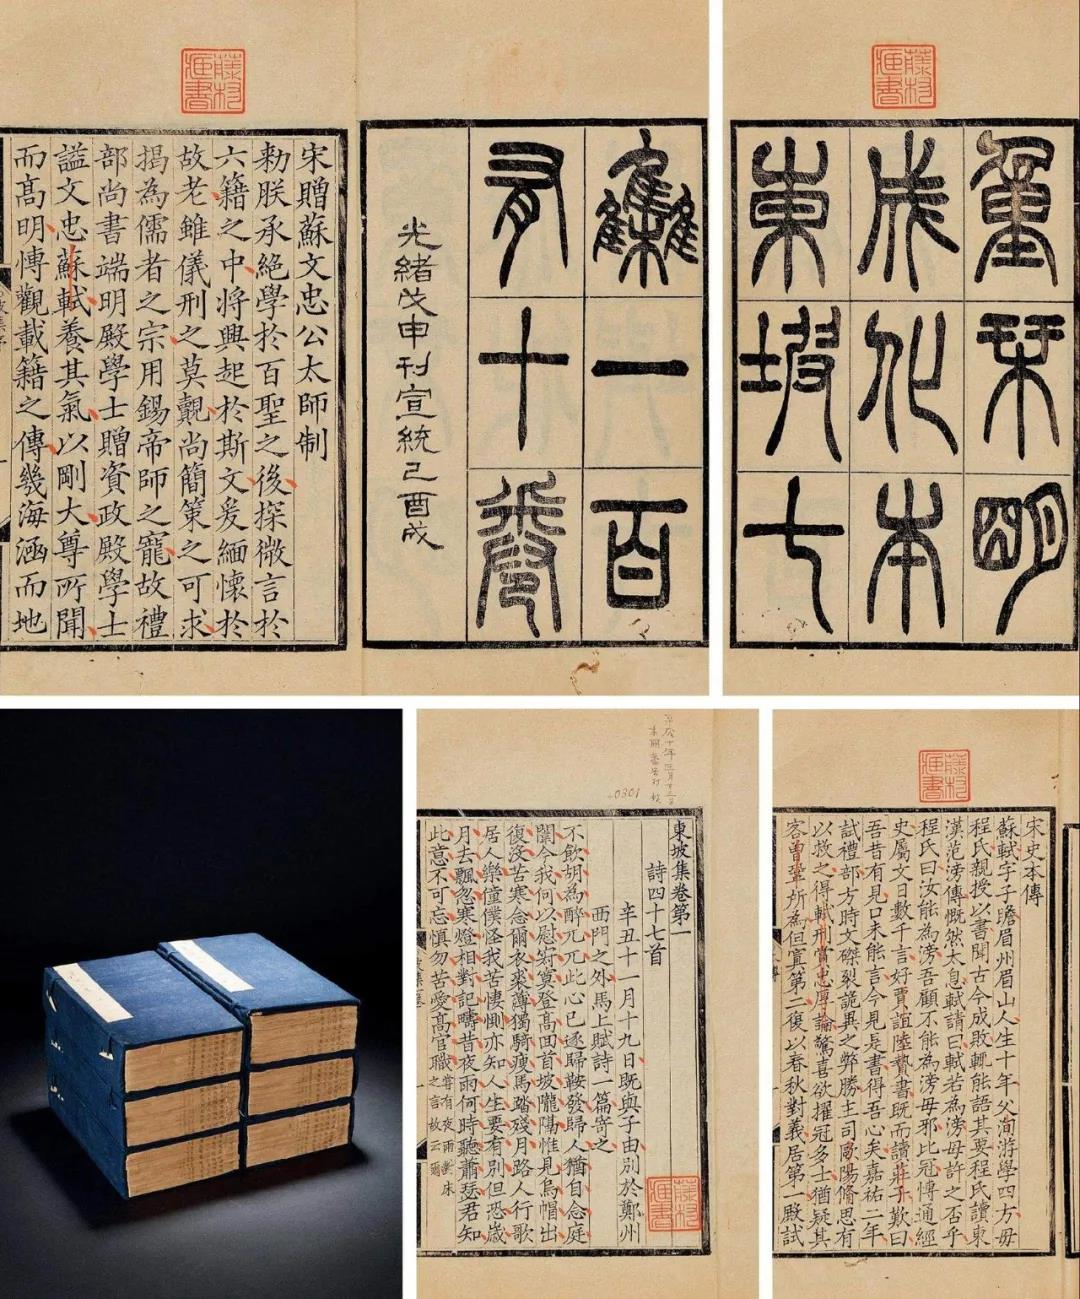 重栞明
成化本
東坡七
集一百
有十卷
光緒戊申刊宣統己酉成
宋贈蘇文忠公太師制
勑朕承絶學於百聖之後探微言於
六籍之中将興起於斯文爰緬懷於
故老雖儀刑之莫覿尚簡策之可求
揭為儒者之宗用錫帝師之寵故禮
部尚書端明殿學士贈資政殿學士
謚文忠蘇軾養其氣以剛大尊所聞
而髙明愽觀載籍之傳幾海涵而地
宋史本傳
蘇軾字子瞻眉州眉山人生十年父洵游學四方毋
程氏親授以書聞古今成敗輒能語其要程氏讀東
漢范滂傳慨然太息軾請曰軾若為滂毋許之否乎
程氏曰汝能為滂吾顧不能為滂毋邪比冠愽通經
史屬文日數千言好賈誼陸贄書既而讀莊子歎曰
吾昔有見口未能言今見是書得吾心矣嘉祐二年
試禮部方時文磔裂詭異之弊勝主司歐陽脩思有
以救之得軾刑賞忠厚論驚喜欲擢冠多士猶疑其
客曾鞏所為但寘第二復以春秋對義居第一殿試
東坡集卷第一
詩四十七首
辛丑十一月十九日既與子由別於鄭州
西門之外馬上賦詩一篇寄之
不飲胡為醉兀兀此心已逐歸鞍發歸人猶自念庭
闈今我何以慰寂寞登髙回首坡隴隔惟見烏帽出
復沒苦寒念爾衣裘薄獨騎瘦馬踏殘月路人行歌
居人樂僮僕怪我苦悽惻亦知人生要有別但恐歲
月去飄忽寒燈相對記疇昔夜雨何時聽蕭瑟君知
此意不可忘慎勿苦愛髙官職嘗有夜雨對床之言故云爾
0301